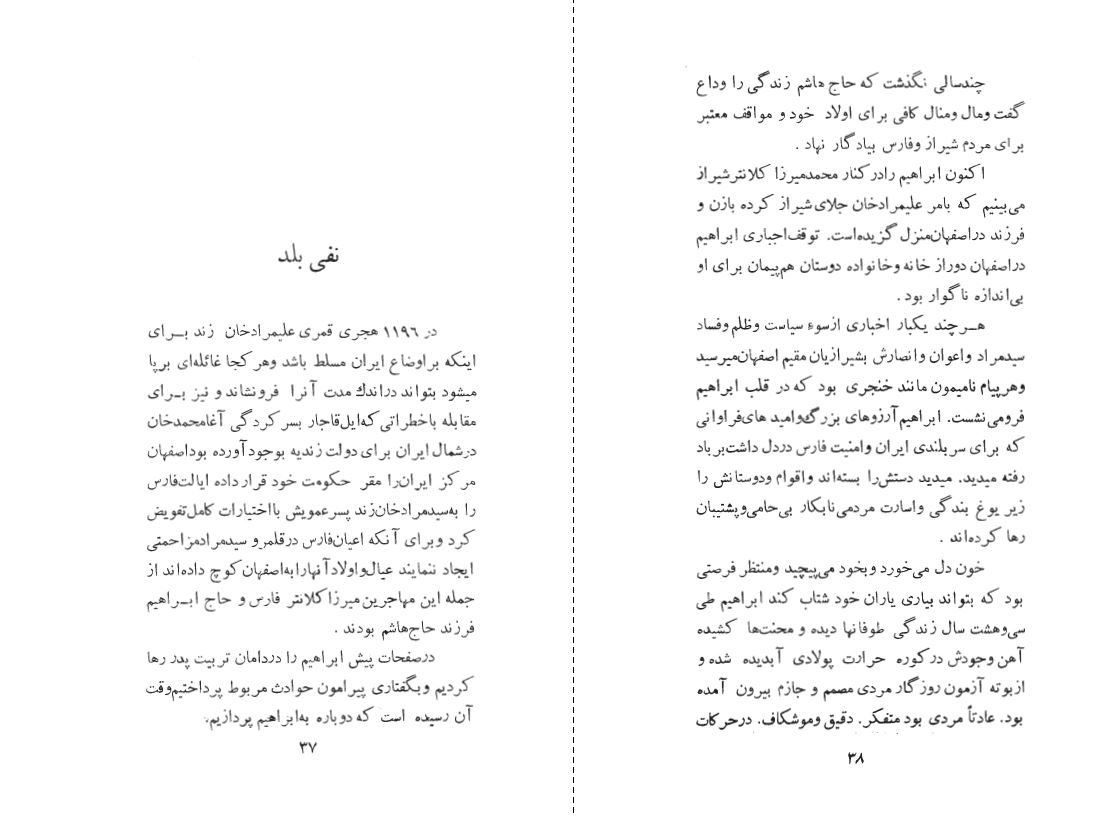 نفی بلد
در ۱۱۹۶ هجری قمری علیمرادخان زند بـرای
اینکه براوضاع ایران مسلط باشد وهرکجا غائله‌ای برپا
میشود بتواند دراندك مدت آنرا فرونشاند و نیز بـرای
مقابله باخطراتی که‌ایل‌قاجار بسر کردگی آغامحمدخان
درشمال ایران برای دولت زندیه بوجود‌آورده بوداصفهان
مرکز ایران‌را مقر حکومت خود قرارداده ایالت‌فارس
را به‌سیدمرادخان‌زند پسرعمویش بااختیارات کامل‌تفویض
کرد وبرای آنکه اعیان‌فارس درقلمرو سیدمرادمزاحمتی
ایجاد ننمایند عیال‌واولادآنهارابه‌اصفهان کوچ داده‌اند از
جمله این مهاجرین میرزا کلانتر فارس و حاج ابـراهیم
فرزند حاج‌هاشم بودند .
درصفحات پیش ابراهیم را دردامان تربیت پدر رها
کردیم وبگفتاری پیرامون حوادث مربوط پرداختیم‌وقت
آن رسیده است که دوباره به‌ابراهیم پردازیم.
۳۷
چندسالی نگذشت که حاج هاشم زندگی را وداع
گفت ومال ومنال کافی برای اولاد خود و مواقف معتبر
برای مردم شیراز وفارس بیادگار نهاد .
اکنون ابراهیم رادرکنار محمدمیرزا کلانترشیراز
می‌بینیم که بامر علیمرادخان جلای‌شیراز کرده بازن و
فرزند دراصفهان‌منزل گزیده‌است. توقف‌اجباری ابراهیم
دراصفهان دوراز خانه وخانواده دوستان هم‌پیمان برای او
بی‌اندازه ناگوار بود .
هـرچند یکبار اخباری ازسوء سیاست وظلم وفساد
سیدمراد واعوان وانصارش بشیرازیان مقیم اصفهان‌میرسید
وهرپیام نامیمون مانند خنجری بود که در قلب ابراهیم
فرومی‌نشست. ابراهیم‌آرزوهای بزرگ‌وامید های‌فراوانی
که برای سربلندی ایران وامنیت فارس دردل داشت‌برباد
رفته میدید. میدید دستش‌را بسته‌اند واقوام ودوستانش را
زیر یوغ بندگی واسارت مردمی‌نابکار بی‌حامی‌وپشتیبان
رها کرده‌اند .
خون دل می‌خورد وبخود می‌پیچید ومنتظر فرصتی
بود که بتواند بیاری یاران خود شتاب کند ابراهیم طی
سی‌وهشت سال زندگی طوفانها دیده و محنت‌ها کشیده
آهن وجودش درکوره حرارت پولادی آبدیده شده و
ازبوته آزمون روزگار مردی مصمم و جازم بیرون آمده
بود. عادتاً مردی بود متفکر. دقیق وموشکاف. درحرکات
۳۸